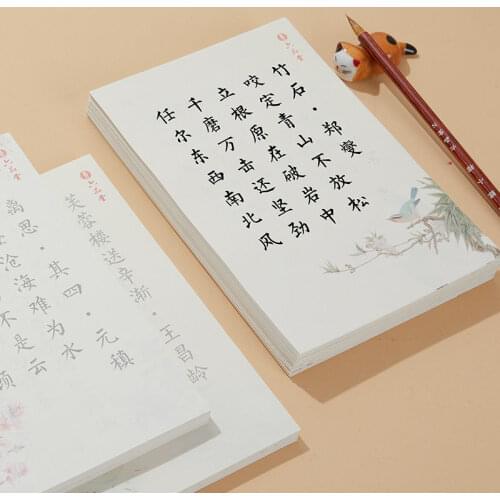 六品堂
竹石·郑燮
咬定青山不放松
立根原在破岩中
千磨万击还坚劲
任尔东西南北风
六品堂
芙蓉楼送辛渐·王昌龄
六品堂
离思·其四·元稹
沧海难为水
不是云